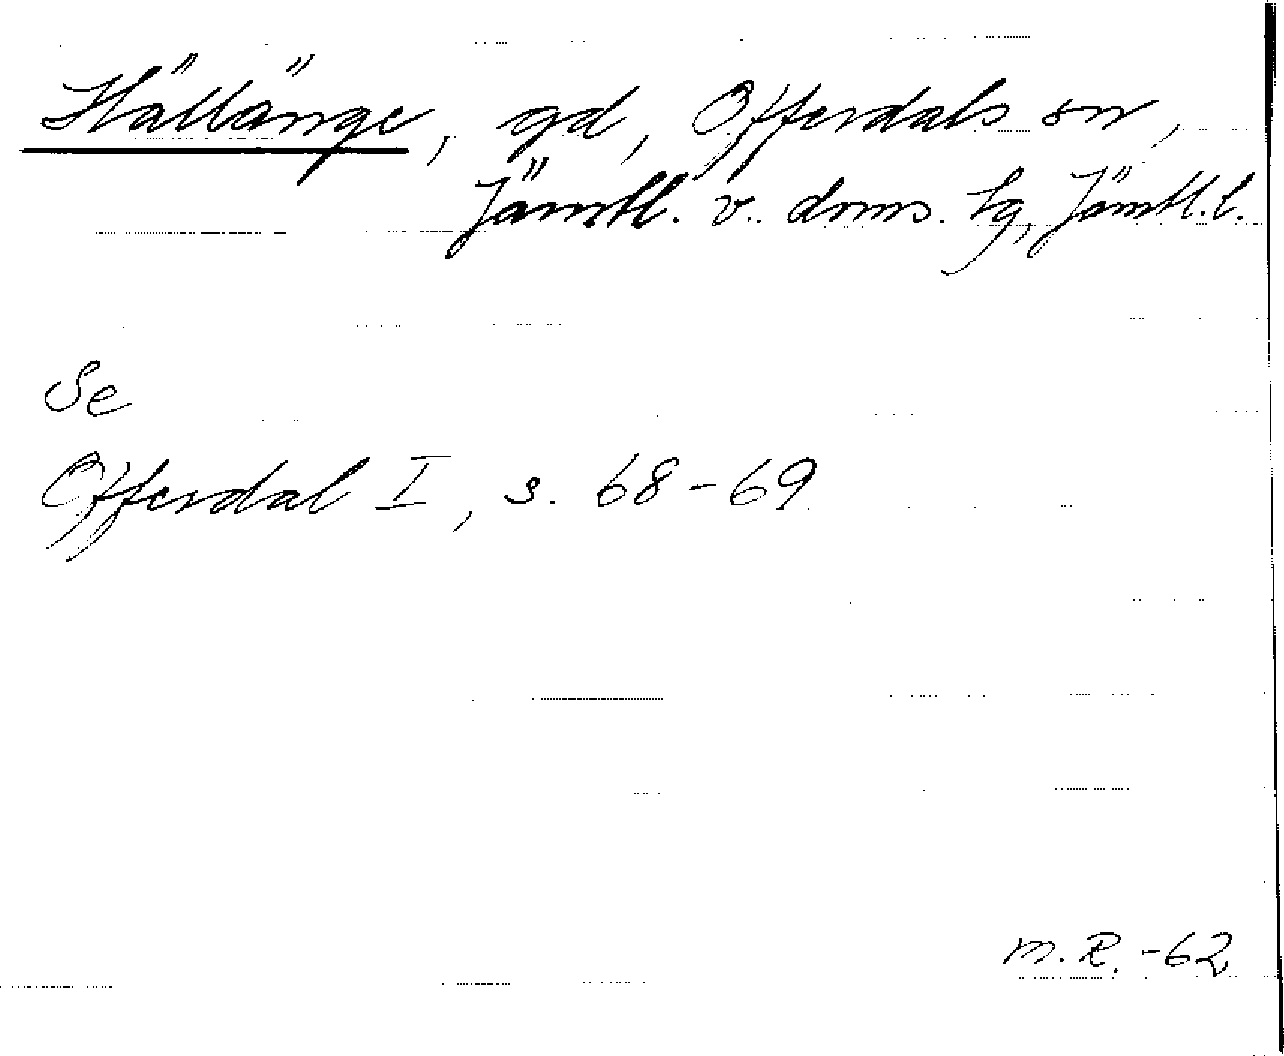 Hällänge, gd, Offerdals sn,
Jämtl. v. doms. tg, Jämtl. l.
Se
Offerdal I, s. 68-69
M.R. -62